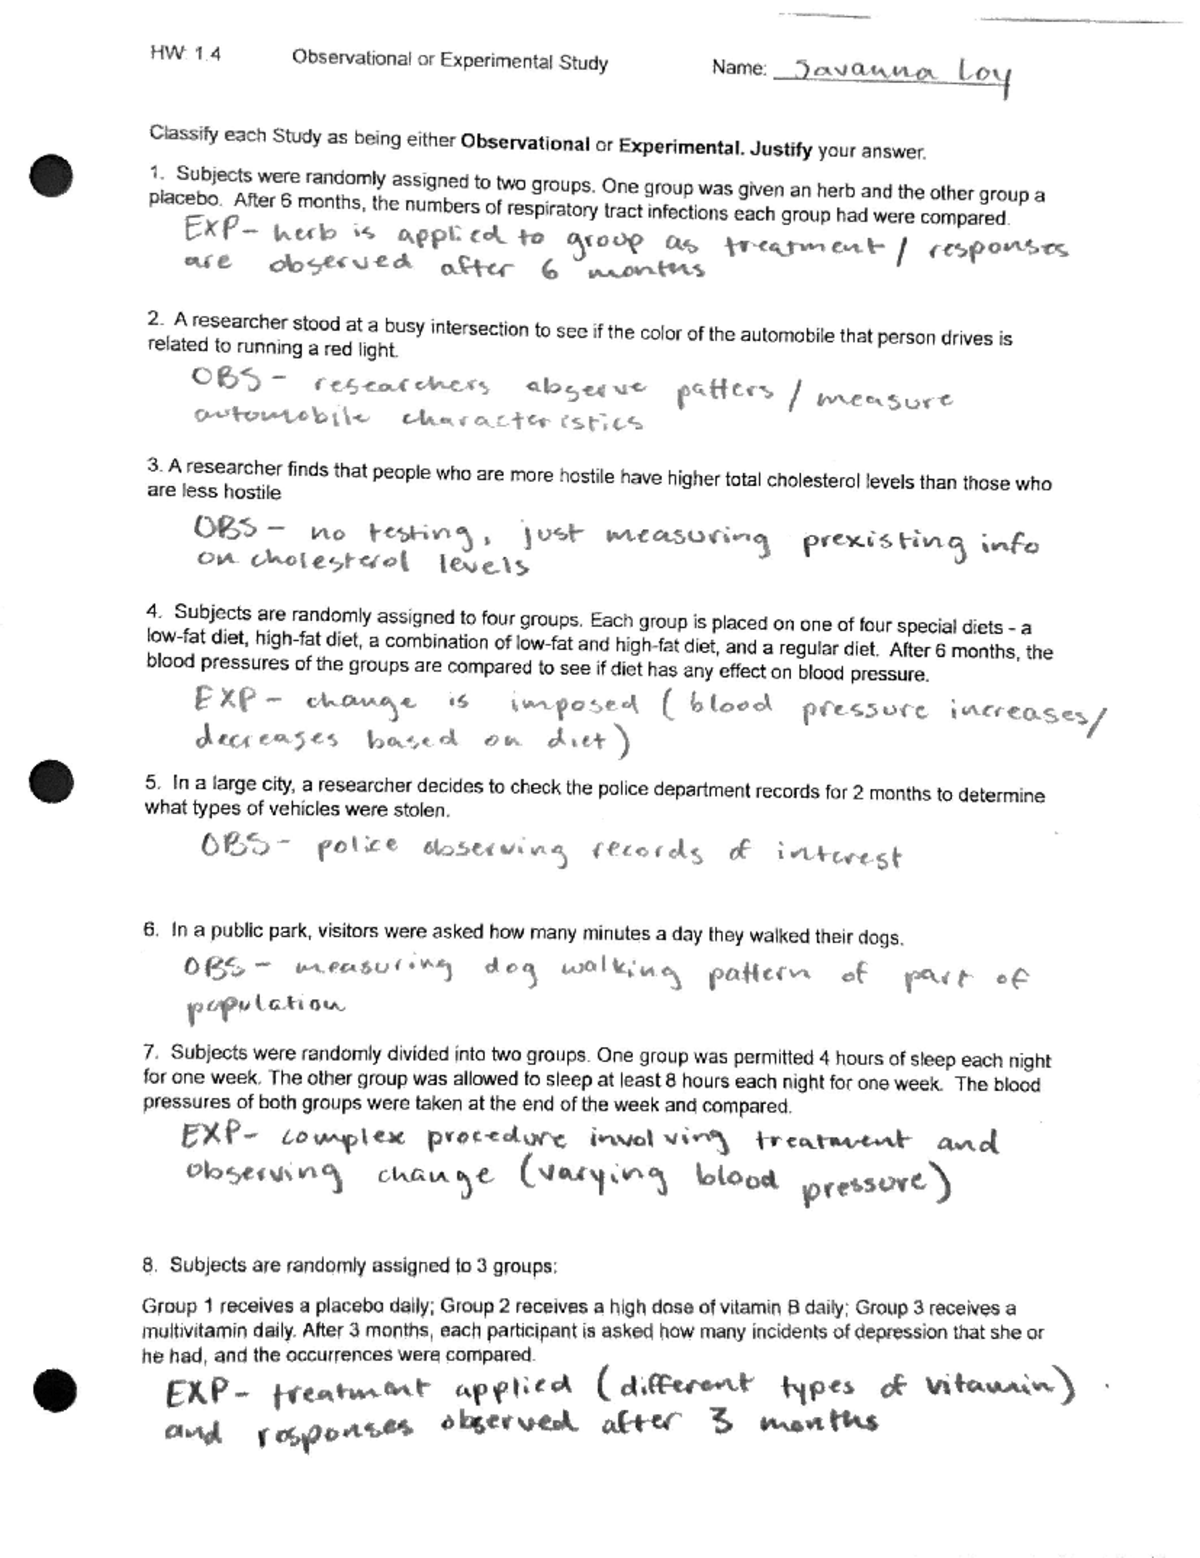 HW: 1.4 Observational or Experimental Study Name: Savanna Loy
Classify each Study as being either Observational or Experimental. Justify your answer.
1. Subjects were randomly assigned to two groups. One group was given an herb and the other group a
placebo. After 6 months, the numbers of respiratory tract infections each group had were compared.
EXP- herb is applied to group as treatment / responses
are observed after 6 months
2. A researcher stood at a busy intersection to see if the color of the automobile that person drives is
related to running a red light.
OBS - researchers observe patters / measure
automobile characteristics
3. A researcher finds that people who are more hostile have higher total cholesterol levels than those who
are less hostile
OBS - no testing, just measuring prexisting info
on cholesterol levels
4. Subjects are randomly assigned to four groups. Each group is placed on one of four special diets - a
low-fat diet, high-fat diet, a combination of low-fat and high-fat diet, and a regular diet. After 6 months, the
blood pressures of the groups are compared to see if diet has any effect on blood pressure.
EXP - change is imposed (blood pressure increases/
decreases based on diet)
5. In a large city, a researcher decides to check the police department records for 2 months to determine
what types of vehicles were stolen.
OBS - police observing records of interest
6. In a public park, visitors were asked how many minutes a day they walked their dogs.
OBS - measuring dog walking pattern of part of
population
7. Subjects were randomly divided into two groups. One group was permitted 4 hours of sleep each night
for one week. The other group was allowed to sleep at least 8 hours each night for one week. The blood
pressures of both groups were taken at the end of the week and compared.
EXP- complex procedure involving treatment and
observing change (varying blood pressure)
8. Subjects are randomly assigned to 3 groups:
Group 1 receives a placebo daily; Group 2 receives a high dose of vitamin B daily; Group 3 receives a
multivitamin daily. After 3 months, each participant is asked how many incidents of depression that she or
he had, and the occurrences were compared.
EXP - treatment applied (different types of vitamin)
and responses observed after 3 months